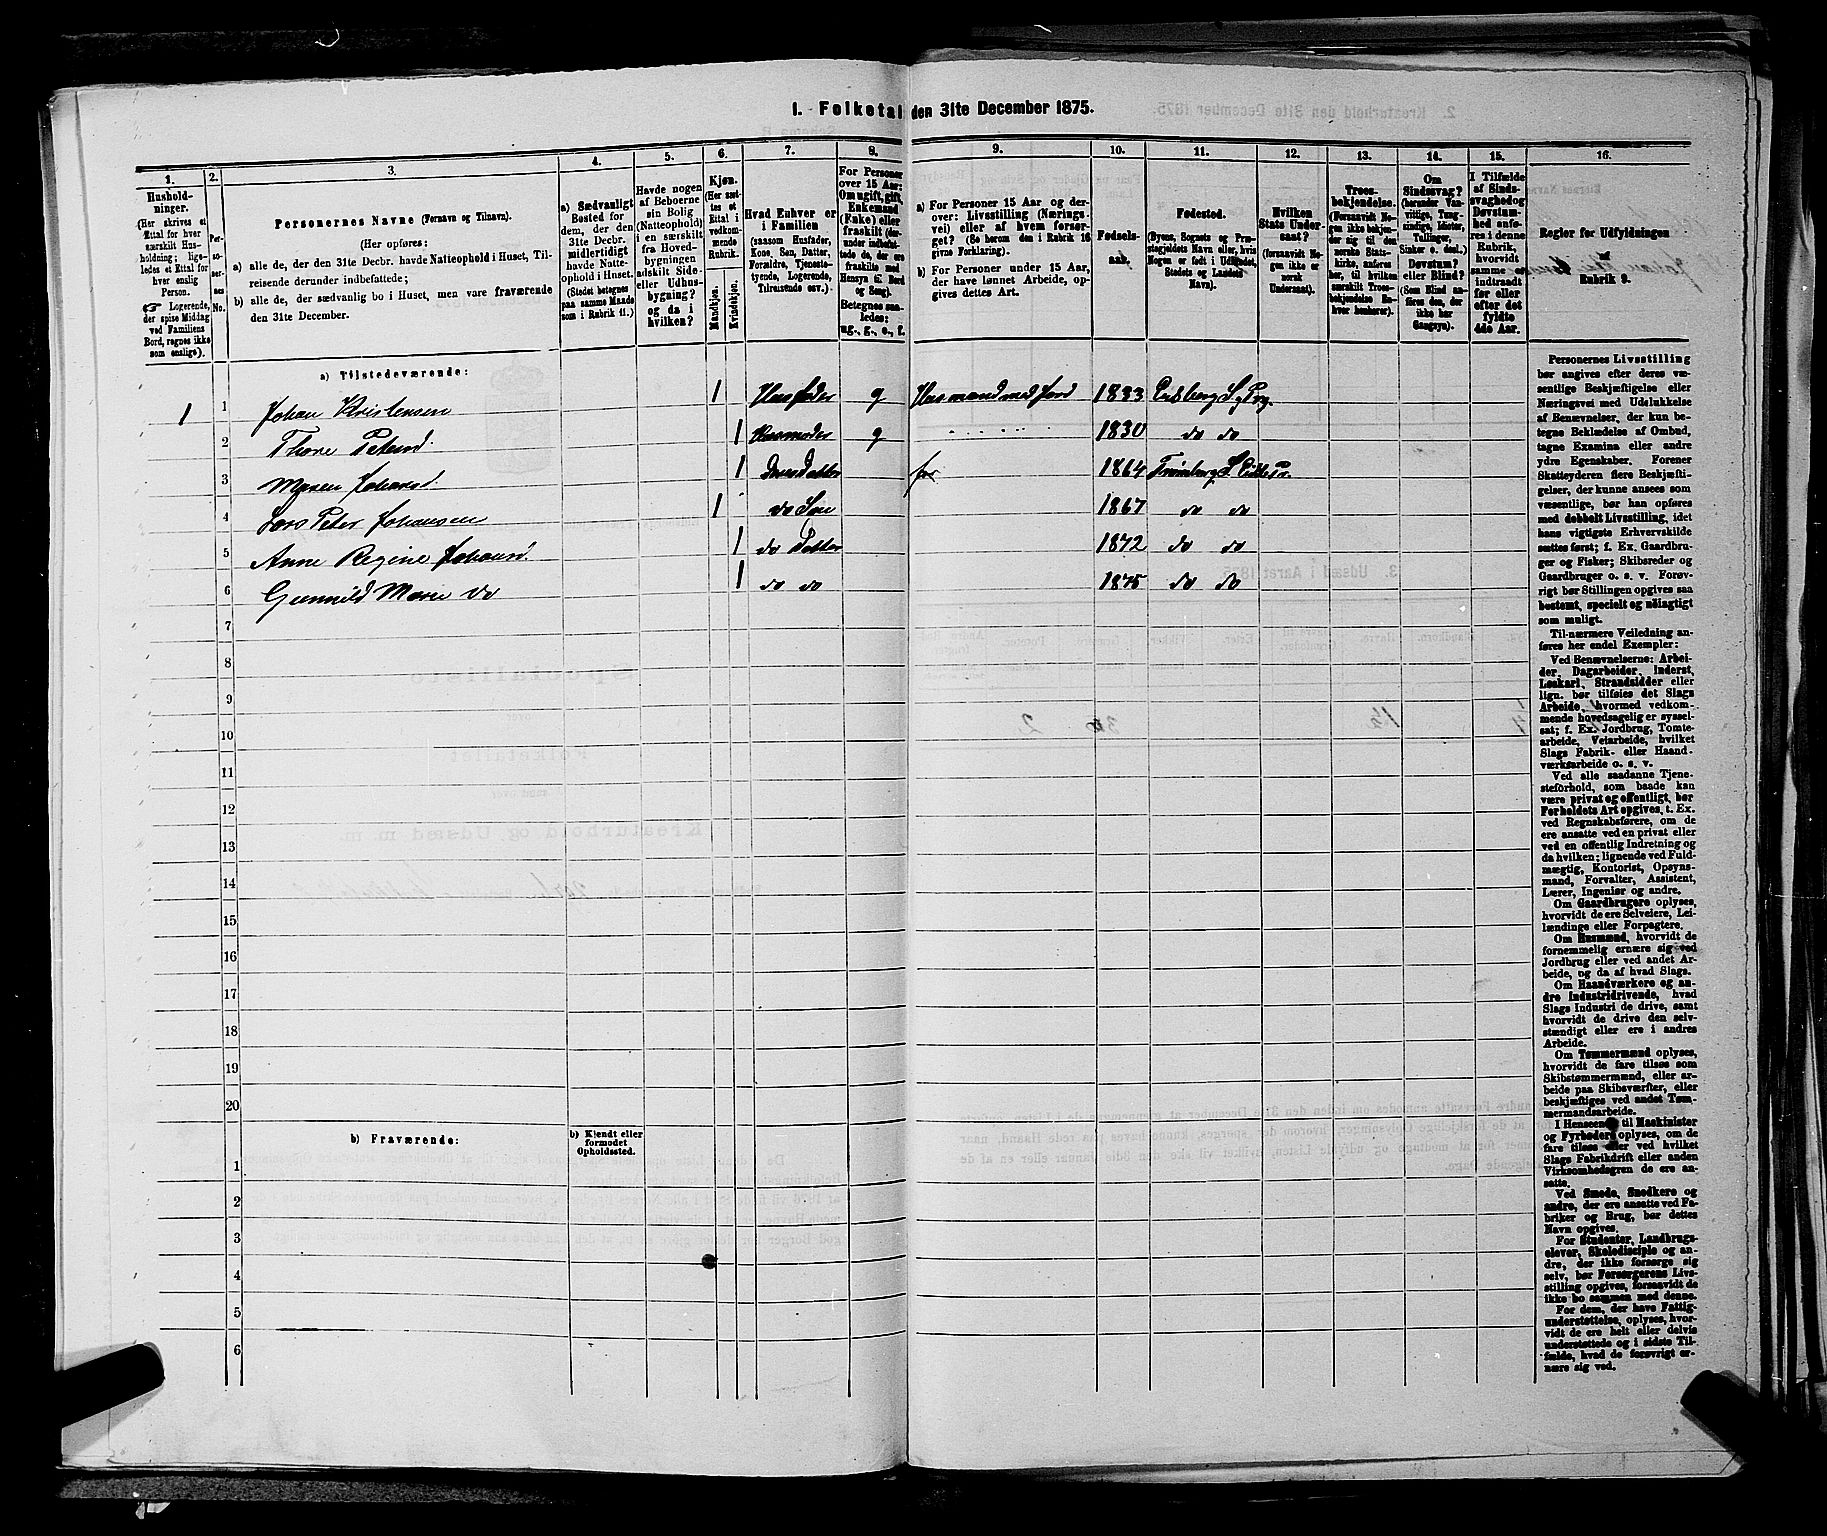 1. Folketal den 31te December 1875.
1. 2. 3. 4. 5. 6. 7. 8. 9. 10. 11. 12. 13. 14. 15. 16.
Husholdninger. (Her skrives et Ettal for hver særskilt Husholdning; ligeledes et Ettal for hver enslig Person. Logerende, der spise Middag ved Familiens Bord, regnes ikke som enslige).
Personernes No.
Personernes Navne (Fornavn og Tilnavn).
(Her opføres:
a) alle de, der den 31te Decbr. havde Natteophold i Huset, Tilreisende derunder indbefattede;
b) alle de, der sædvanlig bo i Huset, men vare fraværende den 31te December.
a) Sædvanligt Bosted for dem, der den 31te Decbr. midlertidigt havde Natteophold i Huset. (Stedet betegnes paa samme Maade som i Rubrik 11.)
Havde nogen af Beboerne sin Bolig (Natteophold) i en særskilt fra Hovedbygningen adskilt Side- eller Udhusbygning? og da i hvilken?
Kjøn. (Her sættes et Ettal i vedkommende Rubrik.
Mandkjøn. Kvindekjøn.
Hvad Enhver er i Familien (saasom Husfader, Kone, Søn, Datter, Forældre, Tjenestetyende, Logerende, Tilreisende osv.)
For Personer over 15 Aar: Om ugift, gift, Enkemand (Enke) eller fraskilt (derunder indbefattede de, der ere fraskilte med Hensyn til Bord og Seng). Betegnes saaledes: ug., g., e., f.
a) For Personer 15 Aar og derover: Livsstilling (Næringsvei) eller af hvem forsørget? (Se herom den i Rubrik 16 givne Forklaring).
b) For Personer under 15 Aar, der have lønnet Arbeide, opgives dettes Art.
Fødselsaar.
Fødested. (Byens, Sognets og Præstegjeldets Navn eller, hvis Nogen er født i Udlandet, Stedets og Landets Navn).
Hvilken Stats Undersaat? (forsaavidt Nogen ikke er norsk Undersaat).
Troesbekjendelse. (Forsaavidt Nogen ikke bekjender sig til den norske Statskirke, anføres her, til hvilken særskilt Troesbekjendelse Enhver henhører).
Om Sindssvag? (herunder Vanvittige, Tungsindige, Idioter, Tullinger, Sinker o. desl.). Døvstum? eller Blind? (Som Blind anføres den, der ikke har Gangsyn).
I Tilfælde af Sindssvaghed og Døvstumhed anføres i denne Rubrik, hvorvidt samme er indtraadt før eller efter det fyldte 4de Aar.
Regler for Udfyldningen af Rubrik 9.
a) Tilstedeværende:
1 1 Johan Kristensen 1 Husfader g Husmand med Jord 1833 Eidsberg S. og Prg.
2 Thore Petersd 1 Husmoder g 1830 do do
3 Maren Johansd 1 Datter 1864 Trømborg S.
4 Lars Peter Johansen 1 do Søn 1867 do do
5 Anne Regine Johansd. 1 do Datter 1872 do do
6 Gunnild Marie do 1 do do 1875 do do
7
8
9
10
11
12
13
14
15
16
17
18
19
20
b) Fraværende:
b) Kjendt eller formodet Opholdssted.
1
2
3
4
5
6
Personernes Livsstilling
bør angives efter deres væ-
sentlige Beskjæftigelse eller
Næringsvei med Udelukkelse
af Benævnelser, der kun be-
tegne Beklædelse af Ombud,
tagne Examina eller andre
ydre Egenskaber. Forener
Skatteyderen flere Beskjæfti-
gelser, der kunne ansees som
væsentlige, bør han opføres
med dobbelt Livsstilling, idet
hans vigtigste Erhvervskilde
sættes først; f. Ex. Gaardbru-
ger og Fisker; Skibsreder og
Gaardbruger o. s. v. Forøv-
rigt bør Stillingen opgives saa
bestemt, specielt og nøiagtigt
som muligt.
Til nærmere Veiledning an-
føres her endel Exempler:
Ved Benævnelserne: Arbei-
der, Dagarbeider, Inderst,
Løskarl, Strandsidder eller
lign. bør tilføies det Slags
Arbeide, hvormed vedkom-
mende hovedsagelig er syssel-
sat; f. Ex. Jordbrug, Tomte-
arbeide, Veiarbeide, hvilket
Slags Fabrik- eller Haand-
værksarbeide o. s. v.
Ved alle saadanne Tjene-
steforhold, som baade kan
være privat og offentligt, bør
Forholdets Art opgives, t. Ex.
ved Regnskabsførere, om de
ere ansatte ved en privat eller
ved en offentlig Indretning og
da hvilken; lignende ved Fuld-
mægtig, Kontorist, Opsyns-
mand, Forvalter, Assistent,
Lærer, Ingeniør og andre.
Om Gaardbrugere oplyses,
hvorvidt de ere Selveiere, Lei-
lændinge eller Forpagtere.
Om Husmænd, hvorvidt de
fornemmelig ernære sig ved
Jordbrug eller ved andet Ar-
beide, og da af hvad Slags.
Om Haandværkere og an-
dre Industridrivende, hvad
Slags Industri de drive, samt
hvorvidt de drive den selv-
stændigt eller ere i andres
Arbeide.
Om Tømmermænd oplyses,
hvorvidt de fare tilsøs som
Skibstømmermænd, eller ar-
beide paa Skibsværfter, eller
beskjæftiges ved andet Tøm-
mermandsarbeide.
I Henseende til Maskinister
og Fyrbødere oplyses, om de
fare tilsøs eller ved hvilket
Slags Fabrikdrift eller anden
Virksomhedsgren de ere an-
satte.
Ved Smede, Snedkere og
andre, der ere ansatte ved Fa-
briker og Brug, bør dettes
Navn opgives.
For Studenter, Landbrugs-
elever, Skoledisciple og an-
dre, der ikke forsørge sig
selv, bør Forsørgerens Livs-
stilling opgives, forsaavidt de
ikke bo sammen med denne.
For dem, der have Fattig-
understøttelse, oplyses, hvor-
vidt de ere helt eller delvis
understøttede og i sidste Til-
fælde, hvad de forøvrigt er-
nære sig ved.